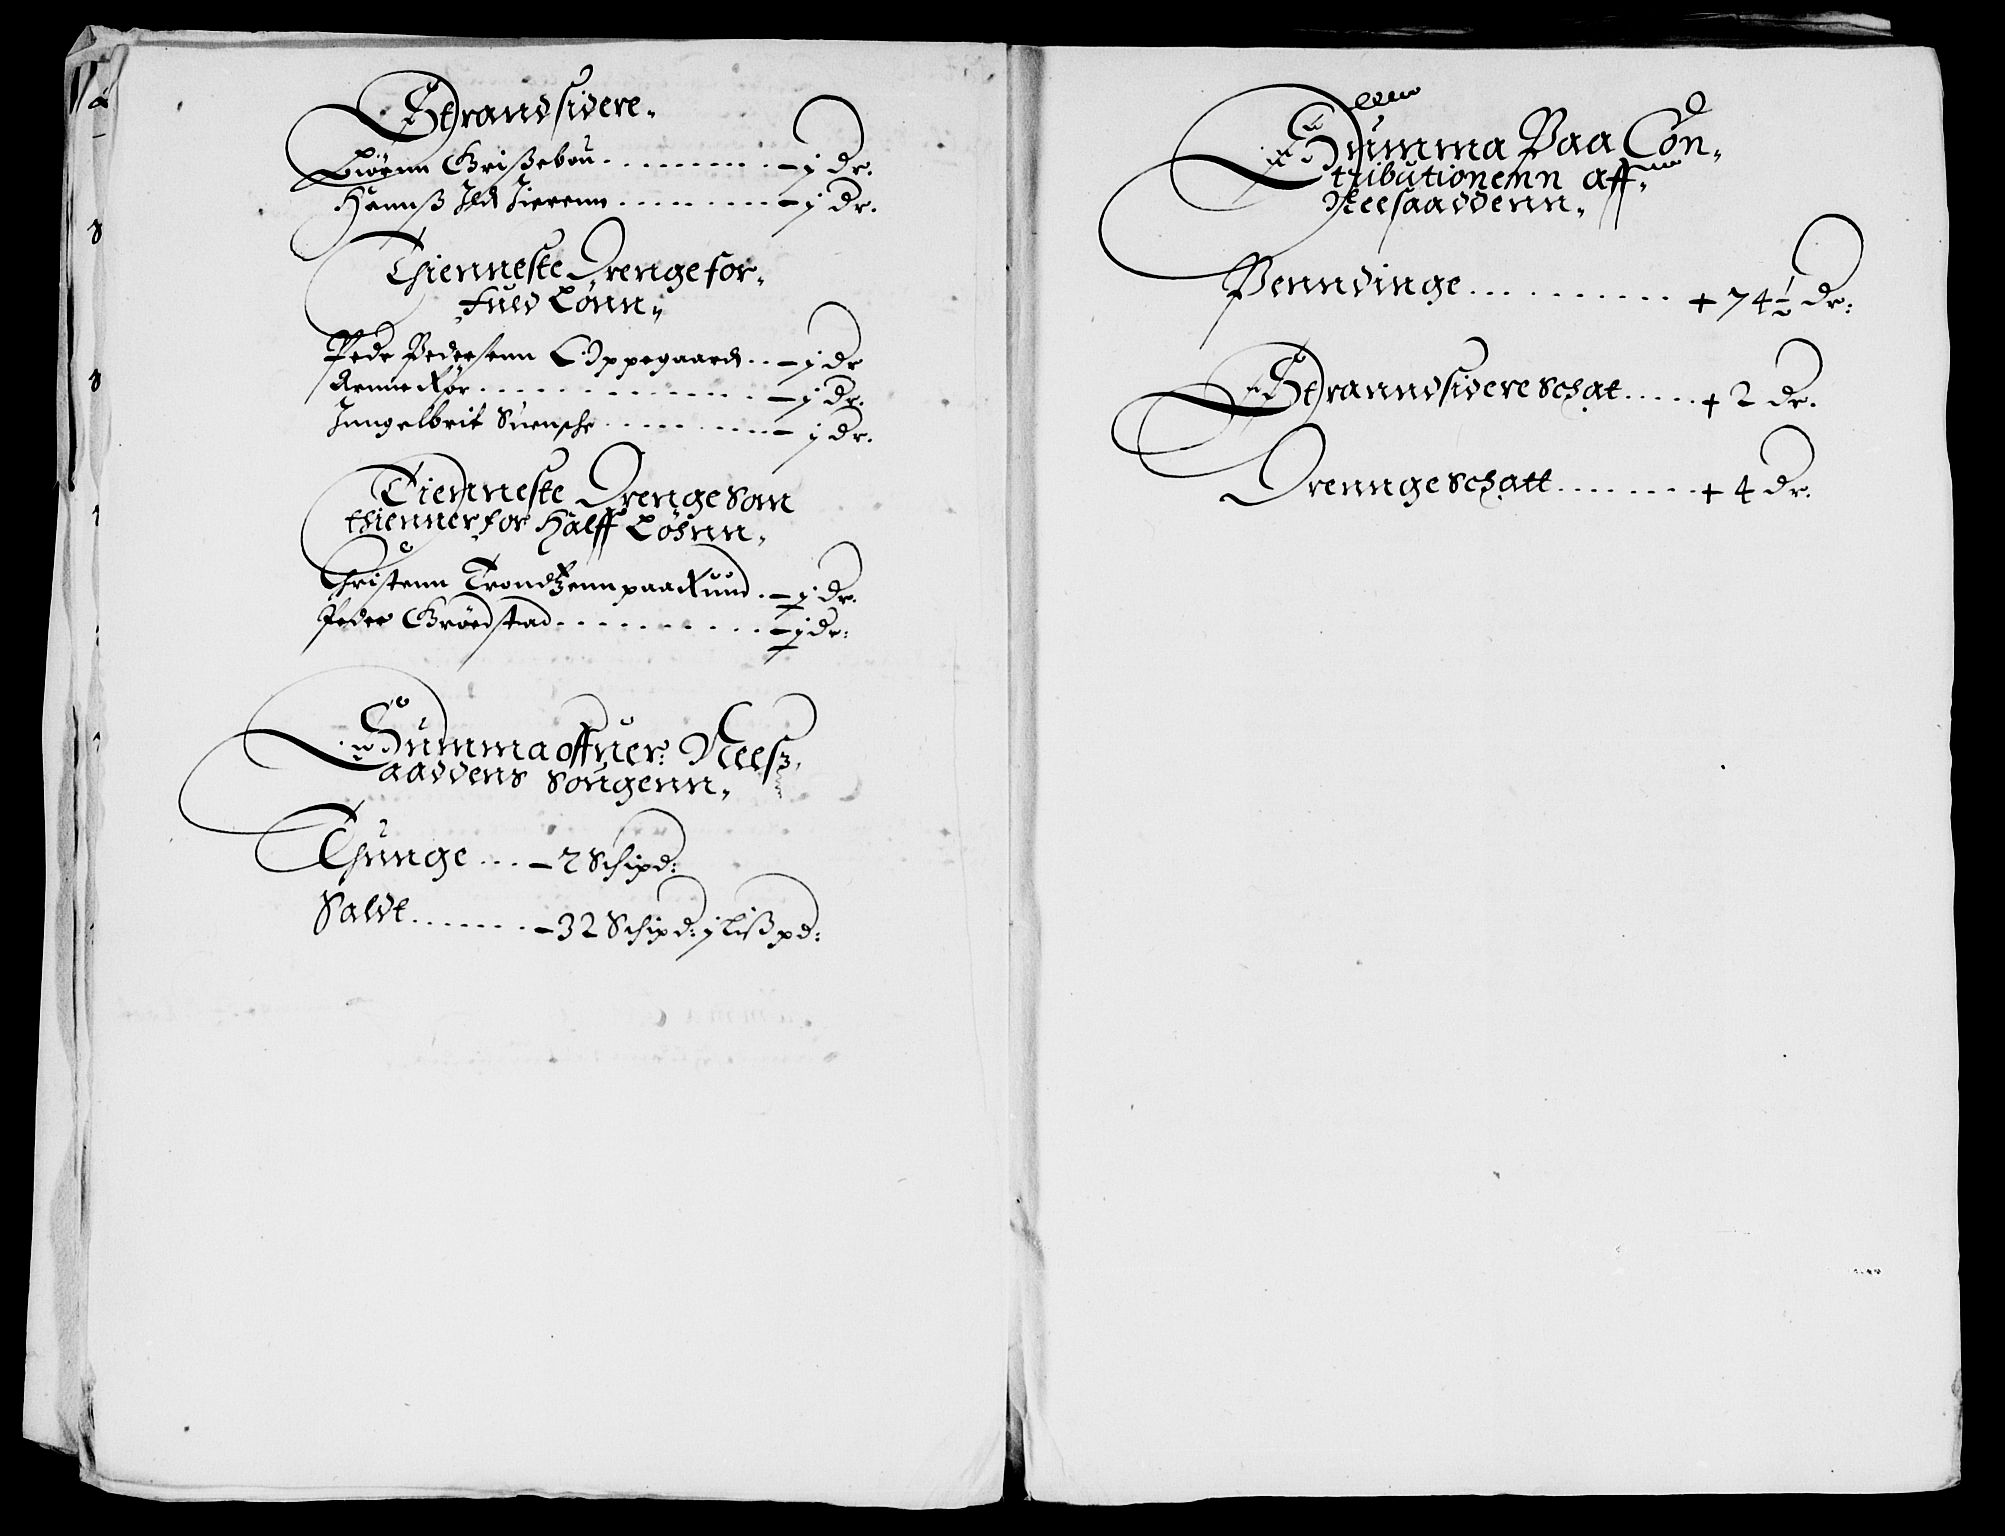 Strandsidere„
Biørnn Grißebou......... – j dr.
Hannß Ild Jierenn........ – j dr.
Thienneste Drenge for„
fuld Lønn„
Peder Pedersenn Oppegaard.. – j dr
Arnne Rør............. – j dr.
Inngelbrit Suensche......... – j dr.
Tienneste Drenge som
thienner for Halff Løhnn„
Christenn Trondtzenn paa Ruud. – ½ dr.
Peder Grøedstad........... – ½ dr:
Summa offuer: Neeß„
aaddens Sougenn„
Thunge... – 2 Schipd:
Saldt....... – 32 Schipd: j Lißpd:
Summa Paa Con„
tributionenn aff„
Neesaaddenn„
Penndinge.......... + 74½ dr:
Stranndsidere Schat..... + 2 dr.
Drennge Schatt....... + 4 dr.